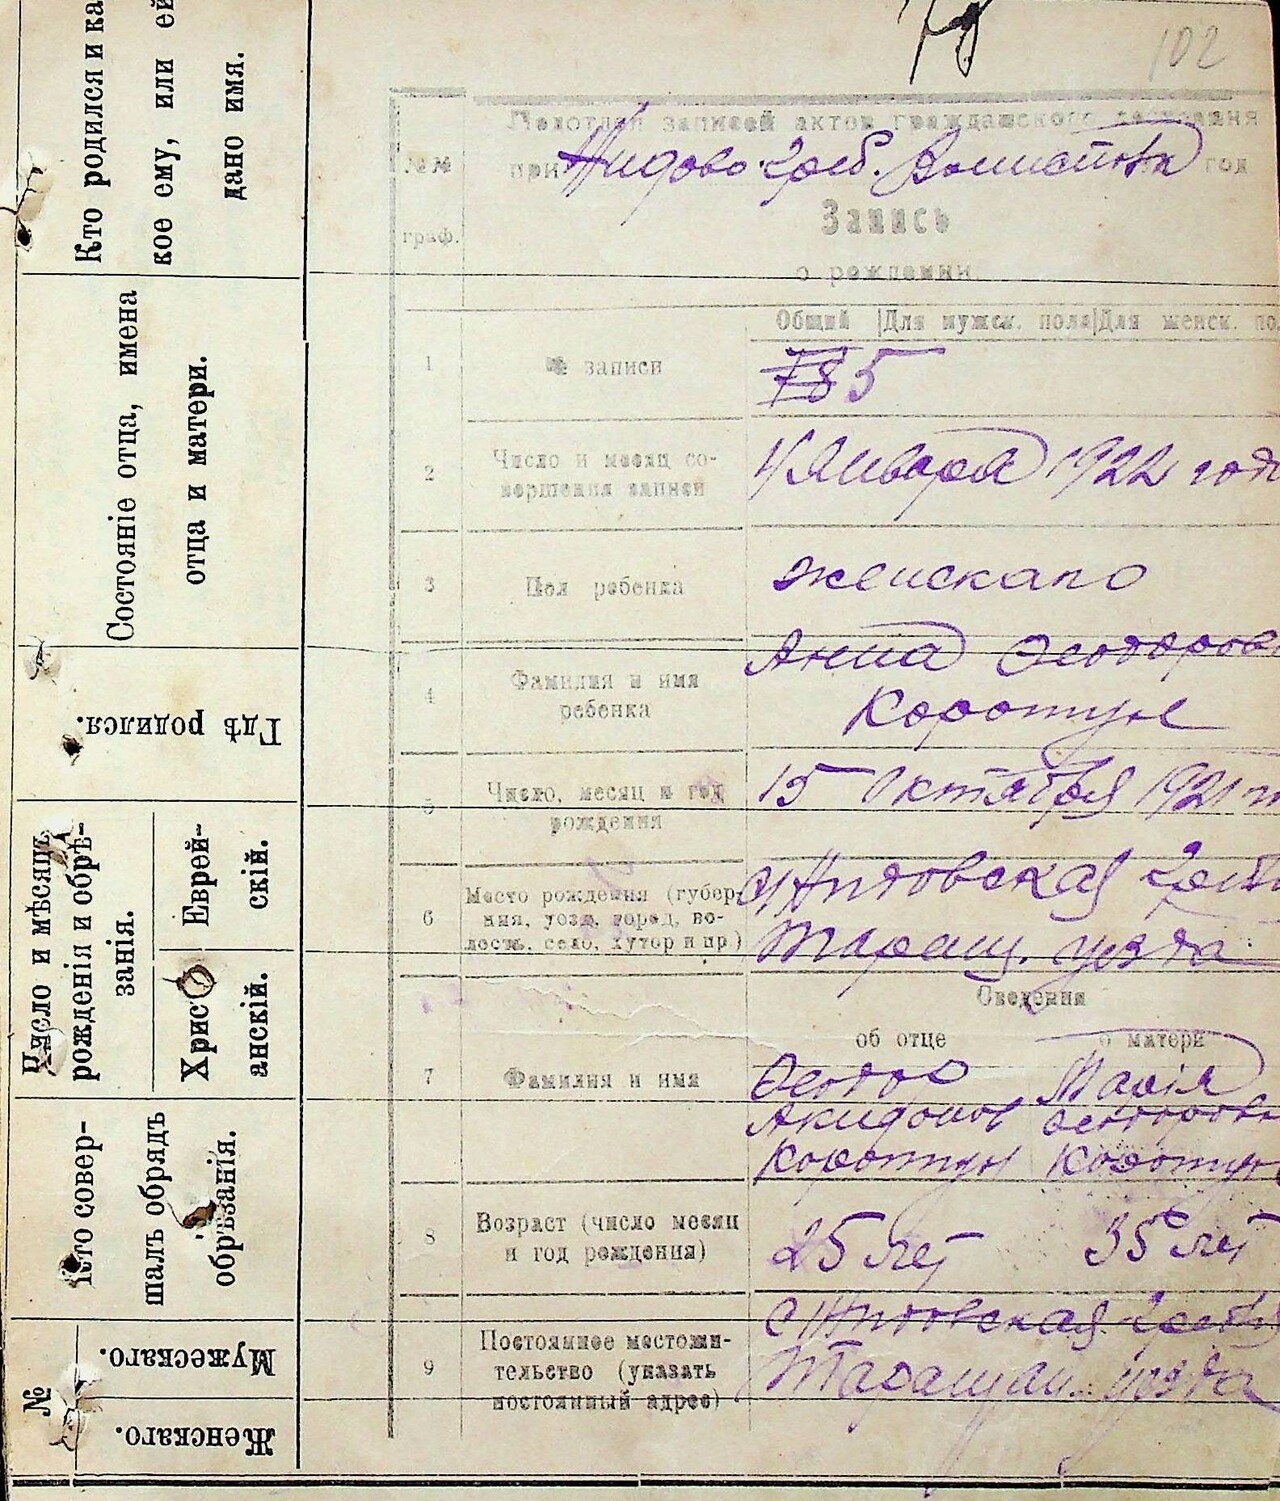 78
102
Кто родился и ка
кое ему, или ей
дано имя.
Состояніе отца, имена
отца и матери.
Гдѣ родился.
Число и мѣсяцъ
рожденія и обрѣ-
занія.
Еврей-
скій.
Христ
анскій.
Кто совер-
шалъ обрядъ
обрѣзанія.
№
Мужескаго.
Женскаго.
записей актов гражданского состояния
№№
при Жидово-Греб. Волисполк год
граф.
Запись
о рождении
Общий Для мужск. пола Для женск. по
1
№ записи
785
2
Число и месяц со-
вершения записи
4 Января 1922 год
3
Пол ребенка
женскаго
4
Фамилия и имя
ребенка
Анна Феодоров
Коротун
5
Число, месяц и год
рождения
15 Октября 1921 г
6
Место рождения (губер-
ния, уезд, город, во-
лость, село, хутор и пр)
с Жидовская Греб
Таращ. уезда
Сведения
об отце
о матери
7
Фамилия и имя
Феодор Марія
Акидонов Феодоров
Коротун Коротун
8
Возраст (число месяц
и год рождения)
25 лет 35 лет
9
Постоянное местожи-
тельство (указать
постоянный адрес)
с Жидовская Гребля
Таращан. уезда